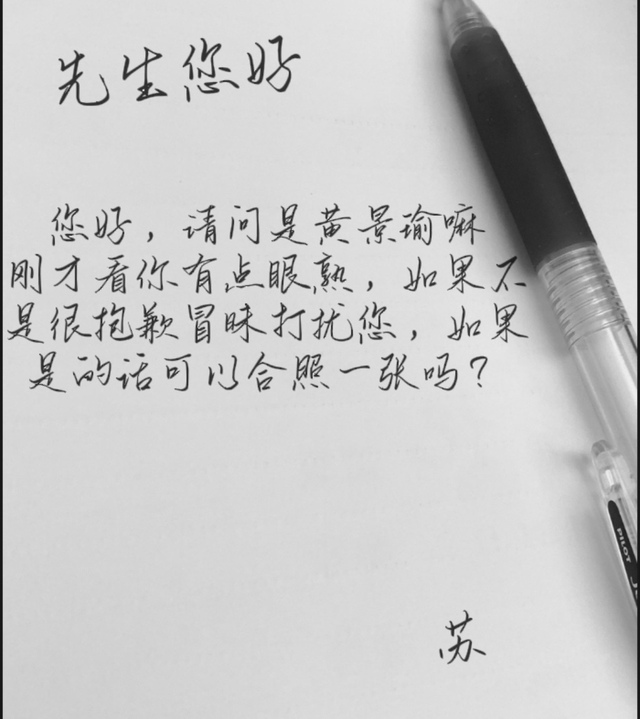 先生您好
您好，请问是黄景瑜嘛
刚才看你有点眼熟，如果不
是很抱歉冒昧打扰您，如果
是的话可以合照一张吗？
苏
PILOT